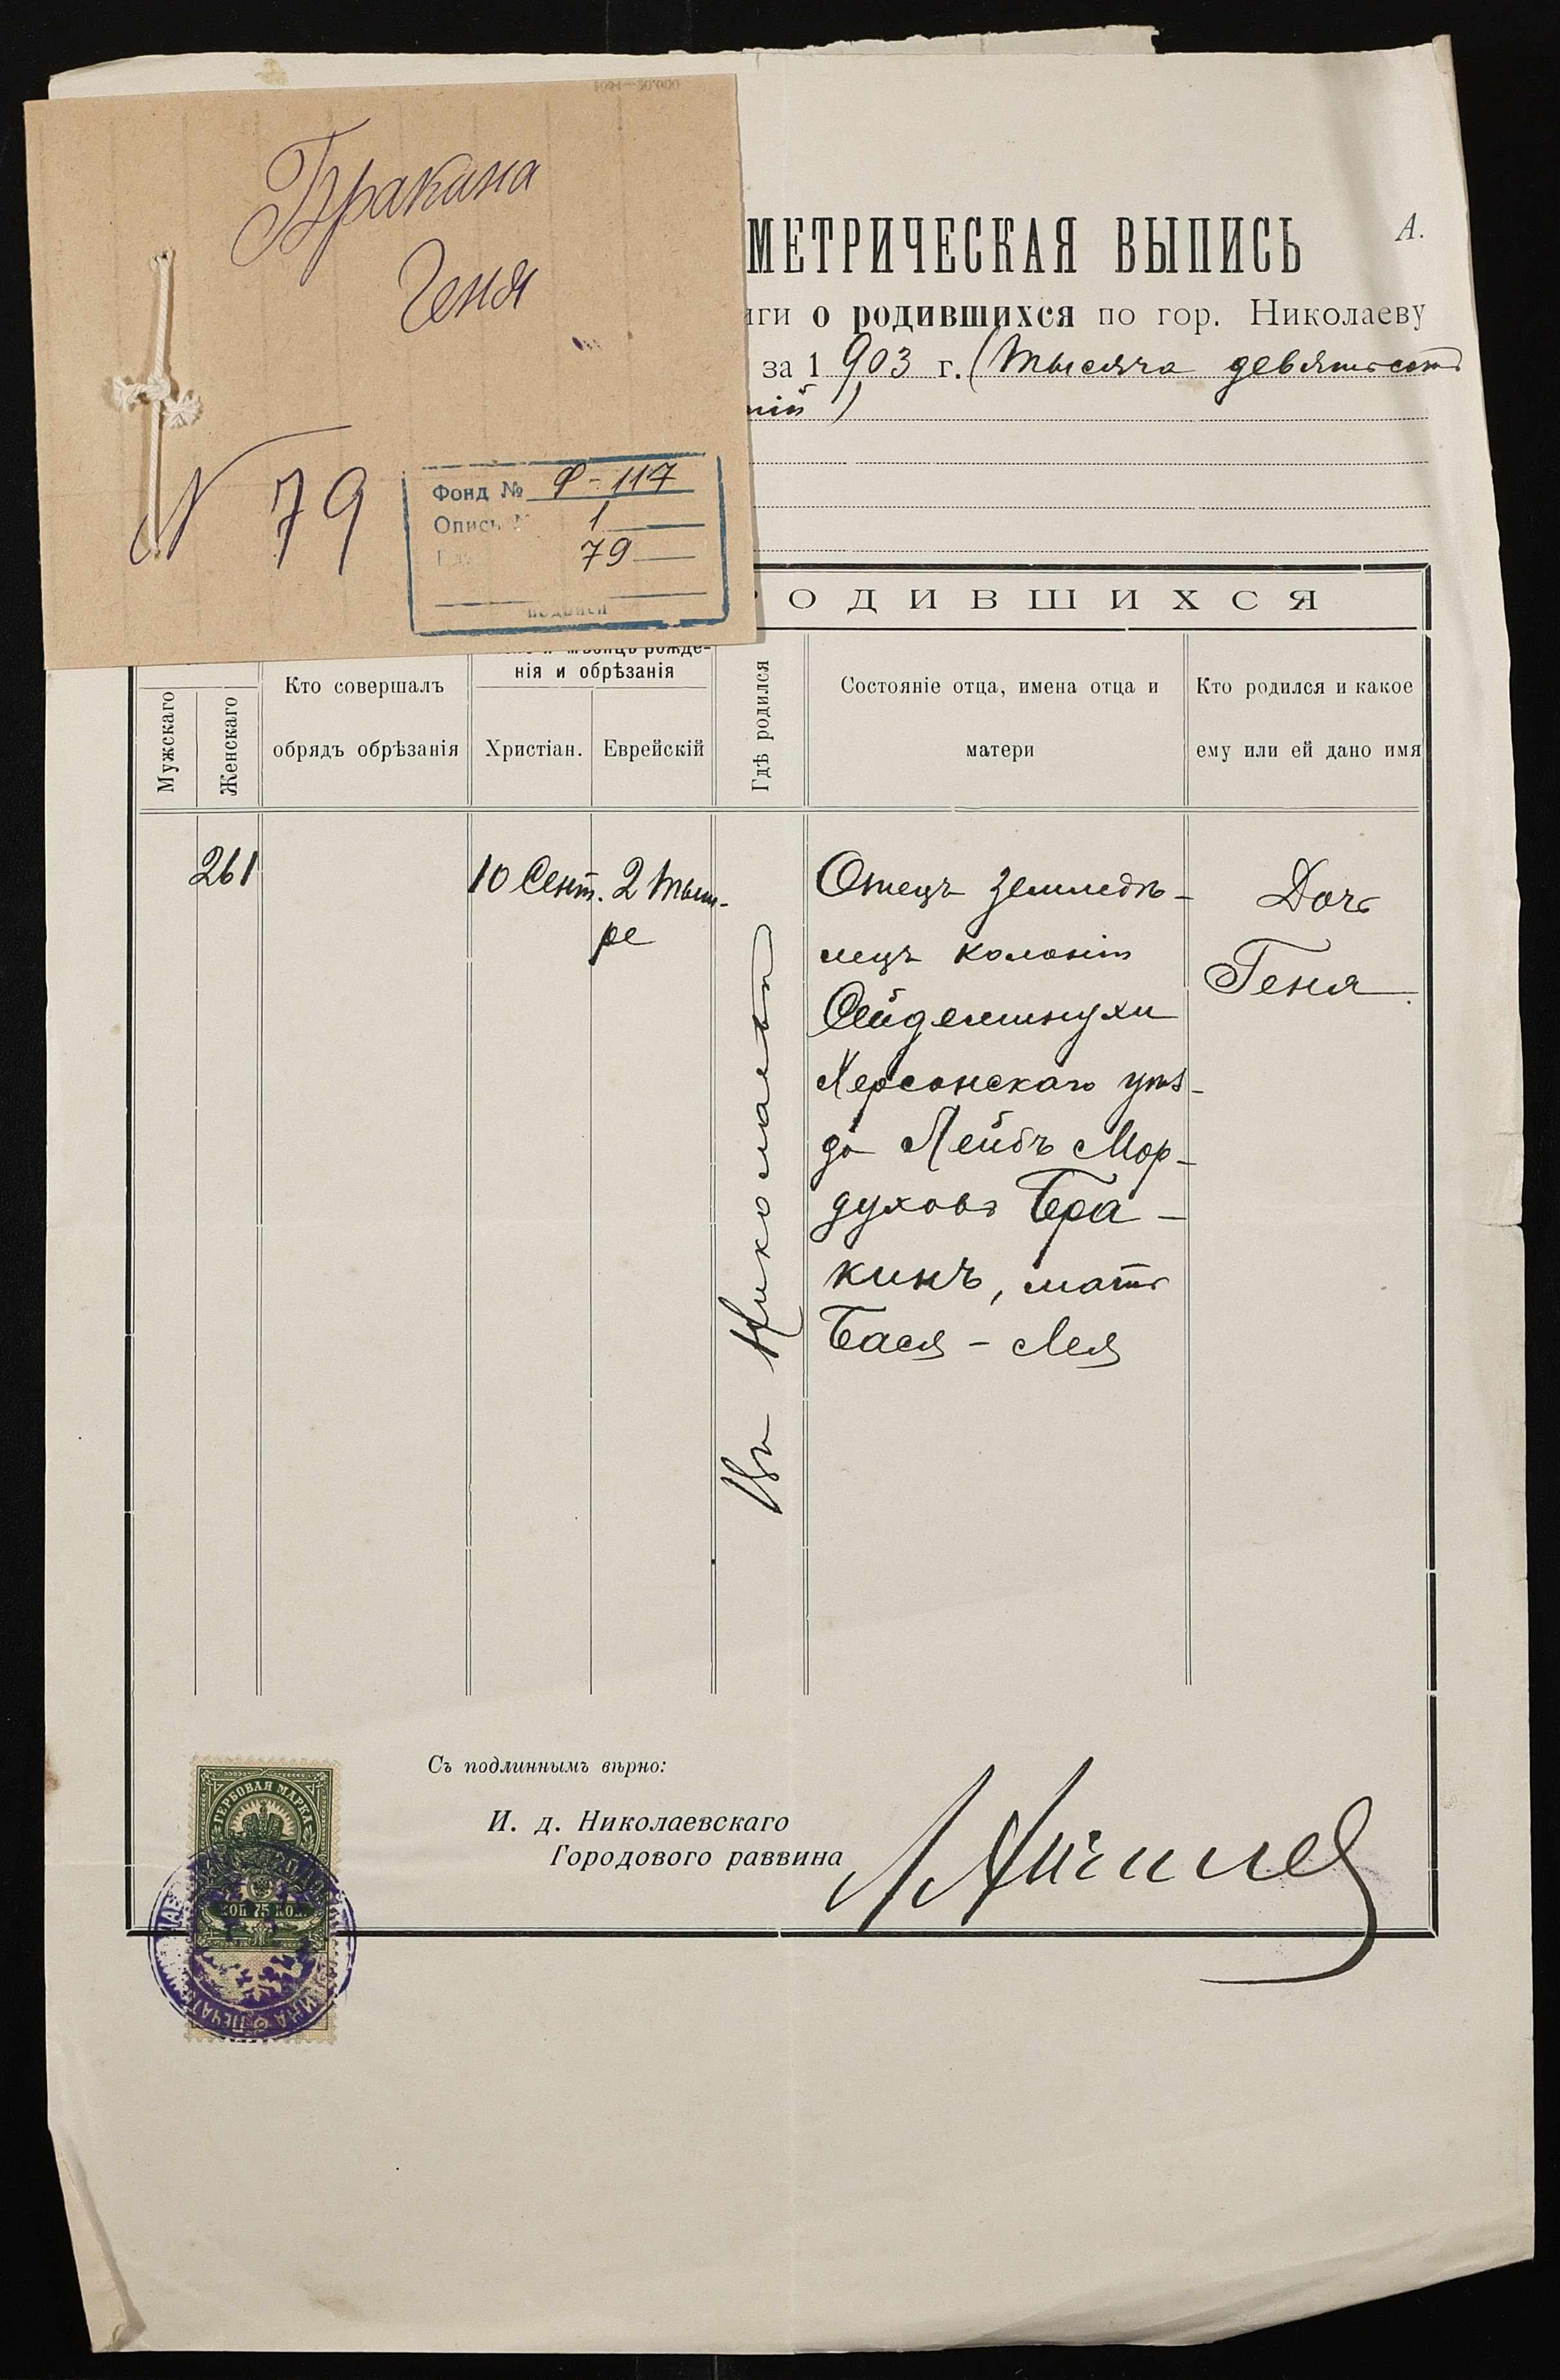 Бракина
Геня
N 79
Фонд № Ф-117
Опись № 1
79
МЕТРИЧЕСКАЯ ВЫПИСЬ
А.
о родившихся по гор. Николаеву
за 1903 г. (тысяча девятьсотъ
тій)
РОДИВШИХСЯ
Мужскаго
Женскаго
Кто совершалъ
обрядъ обрѣзанія
нія и обрѣзанія
Христіан.
Еврейскій
Гдѣ родился
Состояніе отца, имена отца и
матери
Кто родился и какое
ему или ей дано имя
261
10 Сент.
2 Тыш-
ре
Въ Николаевѣ
Отецъ земледѣ-
лецъ колоніи
Сейдеминухи
Херсонскаго уѣз-
да Лейбъ Мор-
духовъ Бра-
кинъ, мать
Бася - Лея
Дочь
Геня
Съ подлиннымъ вѣрно:
И. д. Николаевскаго
Городового раввина
ГЕРБОВАЯ МАРКА
75 КОП.